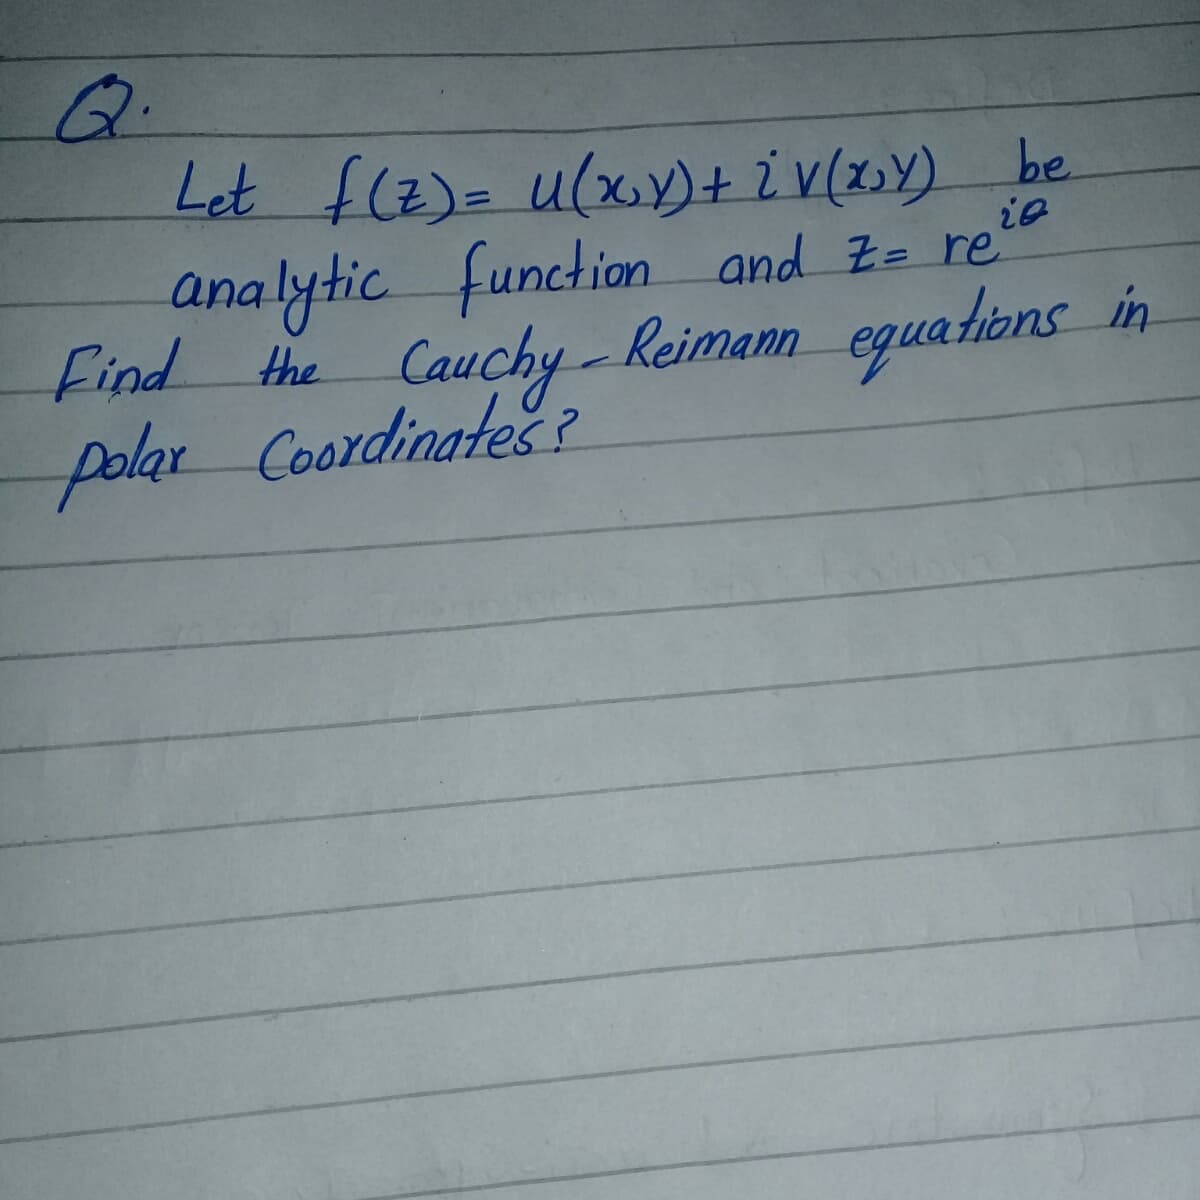 Q.
Let f(z)= u(x,y)+ i v(x,y) be
analytic function and z= re^iθ
Find the Cauchy-Reimann equations in
polar Coordinates?